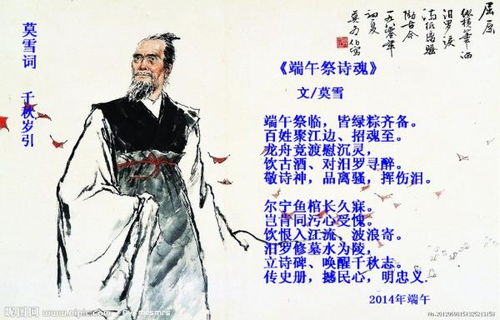 屈原
莫雪词 千秋岁引
《端午祭诗魂》
文/莫雪
端午祭临，皆绿粽齐备。
百姓聚江边、招魂至。
龙舟竞渡慰沉灵，
饮古酒、对汨罗寻醉。
敬诗神，品离骚，挥伤泪。
尔宁鱼棺长久寐。
岂肯同污心受愧。
饮恨入江流、波浪寄。
汨罗修墓水为陵，
立诗碑、唤醒千秋志。
传史册，撼民心，明忠义.
2014年端午
昵图网